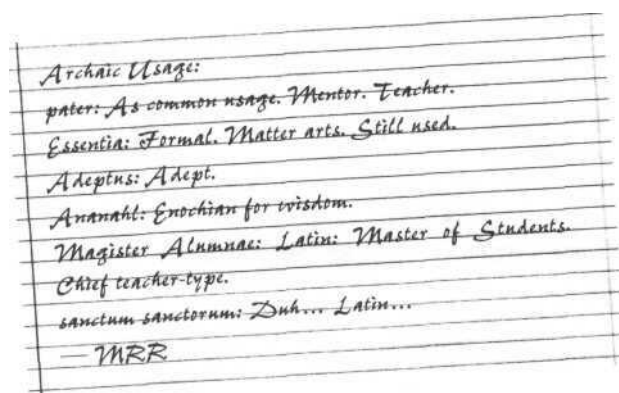 Archaic Usage:
pater: As common usage. Mentor. Teacher.
Essentia: Formal. Matter arts. Still used.
Adeptus: Adept.
Ananahl: Enochian for wisdom.
Magister Alumnae: Latin: Master of Students.
Chief teacher-type.
sanctum sanctorum: Duh... Latin...
— MRR